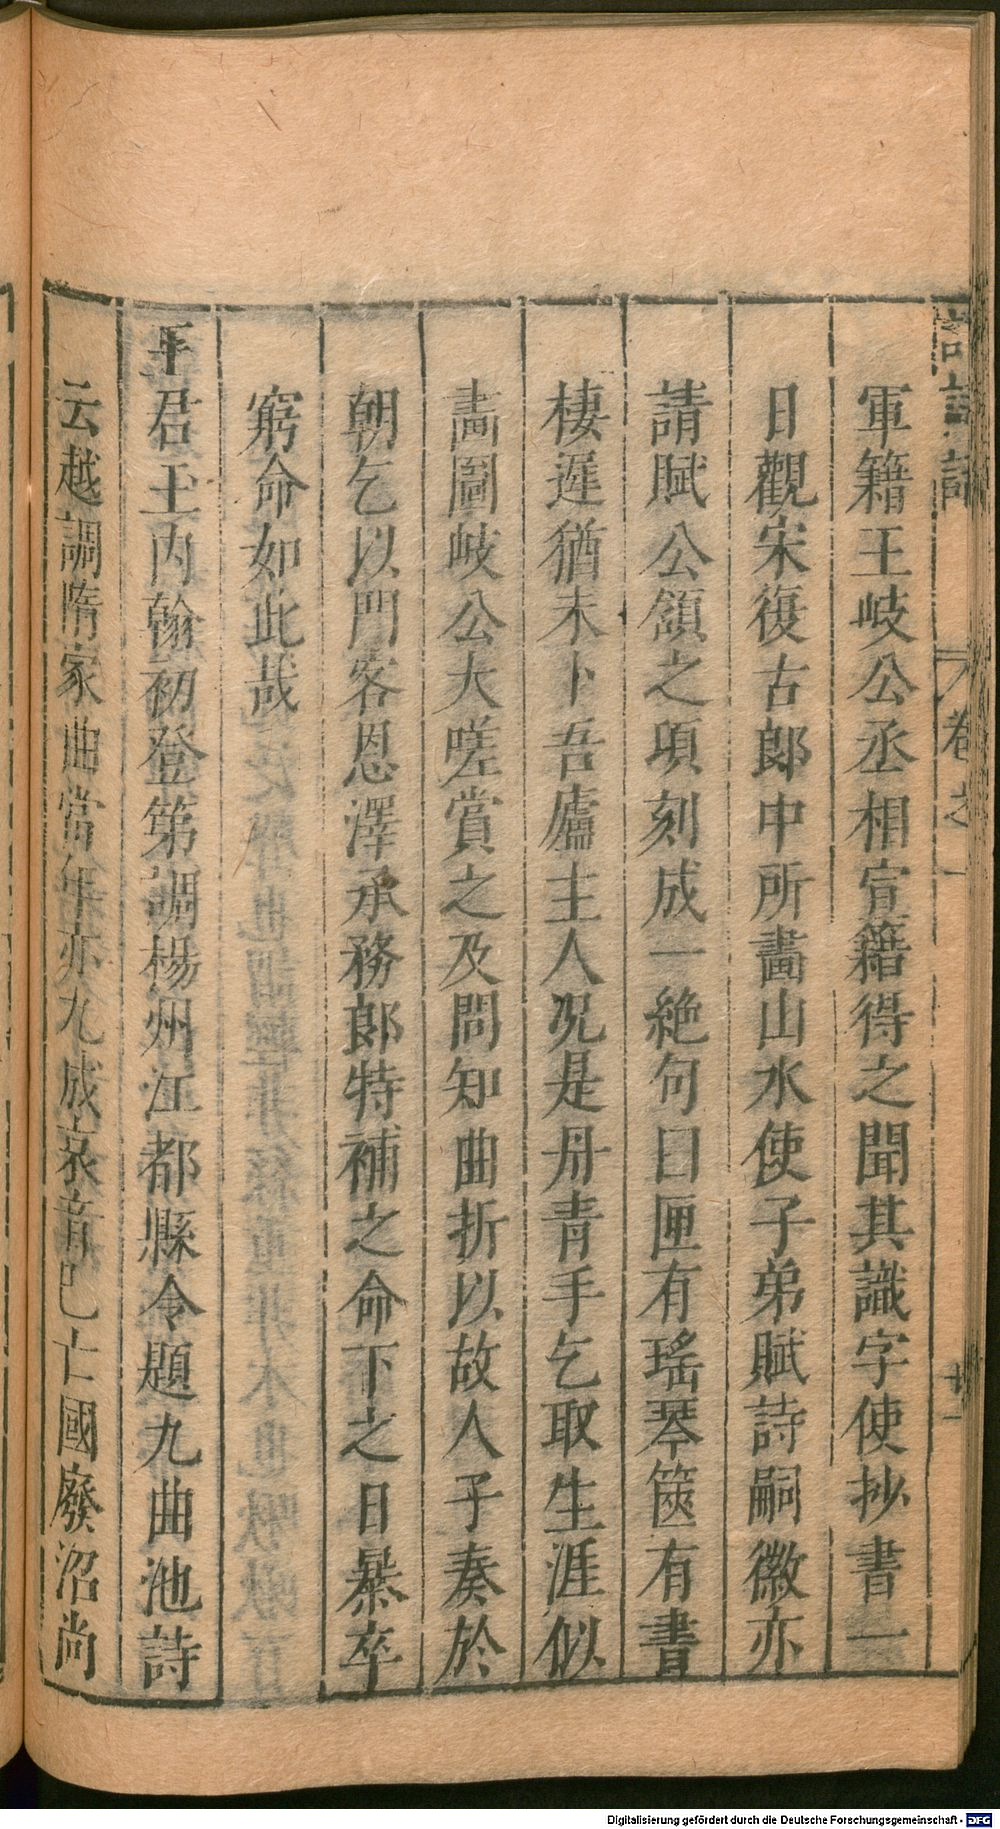 軍籍王岐公丞相宣籍得之聞其識字使抄書一
日觀宋復古郎中所畵山水使子弟賦詩嗣徽亦
請賦公頷之項刻成一絶句曰匣有瑤琴篋有書
棲遲猶未卜吾廬主人况是丹青手乞取生涯似
畵圖岐公大嗟賞之及問知曲折以故人子奏於
朝乞以門客恩澤承務郎特補之命下之日暴卒
窮命如此哉
王君玉內翰初登第調楊州江都縣令題九曲池詩
云越調隋家曲當年亦九成哀音已亡國廢沼尚
卷之一
廿一
Digitalisierung gefördert durch die Deutsche Forschungsgemeinschaft - DFG